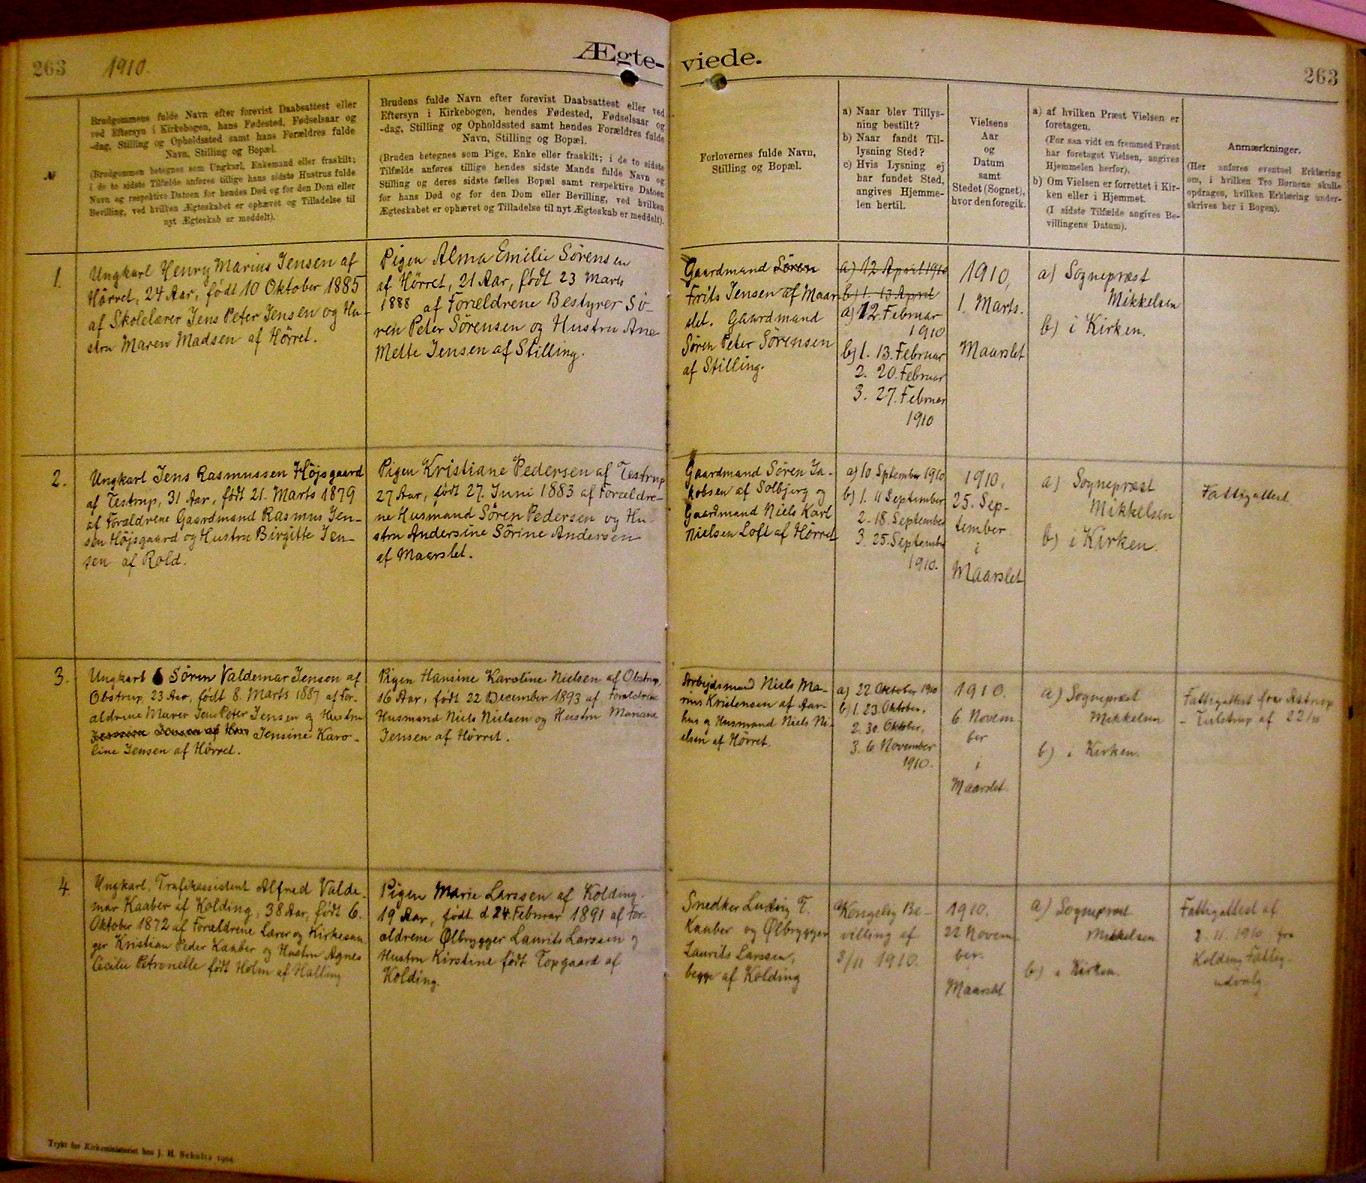 263
1910.
Ægte-
viede.
263
№
Brudgommens fulde Navn efter forevist Daabsattest eller
ved Eftersyn i Kirkebogen, hans Fødested, Fødselsaar og
-dag, Stilling og Opholdssted samt hans Forældres fulde
Navn, Stilling og Bopæl.
(Brudgommen betegnes som Ungkarl, Enkemand eller fraskilt;
i de to sidste Tilfælde anføres tillige hans sidste Hustrus fulde
Navn og respektive Datoen for hendes Død og for den Dom eller
Bevilling, ved hvilken Ægteskabet er ophævet og Tilladelse til
nyt Ægteskab er meddelt).
Brudens fulde Navn efter forevist Daabsattest eller ved
Eftersyn i Kirkebogen, hendes Fødested, Fødselsaar og
-dag, Stilling og Opholdssted samt hendes Forældres fulde
Navn, Stilling og Bopæl.
(Bruden betegnes som Pige, Enke eller fraskilt; i de to sidste
Tilfælde anføres tillige hendes sidste Mands fulde Navn og
Stilling og deres sidste fælles Bopæl samt respektive Datoen
for hans Død og for den Dom eller Bevilling, ved hvilken
Ægteskabet er ophævet og Tilladelse til nyt Ægteskab er meddelt).
Forlovernes fulde Navn,
Stilling og Bopæl.
a) Naar blev Tillys-
ning bestilt?
b) Naar fandt Til-
lysning Sted?
c) Hvis Lysning ej
har fundet Sted,
angives Hjemme-
len hertil.
Vielsens
Aar
og
Datum
samt
Stedet (Sognet),
hvor den foregik.
a) af hvilken Præst Vielsen er
foretagen.
(For saa vidt en fremmed Præst
har foretaget Vielsen, angives
Hjemmelen herfor).
b) Om Vielsen er forrettet i Kir-
ken eller i Hjemmet.
(I sidste Tilfælde angives Be-
villingens Datum).
Anmærkninger.
(Her anføres eventuel Erklæring
om, i hvilken Tro Børnene skulle
opdrages, hvilken Erklæring under-
skrives her i Bogen).
1.
Ungkarl Henry Marius Jensen af
Hørret, 24 Aar, født 10 Oktober 1885
af Skolelærer Jens Peter Jensen og Hu-
stru Maren Madsen af Hørret.
Pigen Alma Emilie Sørensen
af Hørret, 21 Aar, født 23 Marts
1888 af Forældrene Bestyrer Sø-
ren Peter Sørensen og Hustru Ane
Mette Jensen af Stilling.
Gaardmand Søren
Frits Jensen af Maar
slet. Gaardmand
Søren Peter Sørensen
af Stilling.
a) 12 April 1910
b) 1. 13 April
a) 12. Februar
1910
b) 1. 13. Februar
2. 20. Februar
3. 27. Februar
1910
1910,
1. Marts.
Maarslet
a) Sognepræst
Mikkelsen
b) i Kirken.
2.
Ungkarl Jens Rasmussen Højsgaard
af Testrup, 31 Aar, født 21. Marts 1879
af Forældrene Gaardmand Rasmus Jen-
sen Højsgaard og Hustru Birgitte Jen-
sen af Rold.
Pigen Kristiane Pedersen af Testrup
27 Aar, født 27. Juni 1883 af Forældre-
ne Husmand Søren Pedersen og Hu-
stru Andersine Sørine Andersen
af Maarslet.
Gaardmand Søren Ja-
kobsen af Solbjerg og
Gaardmand Niels Karl
Nielsen Loft af Hørret
a) 10 September 1910
b) 1. 11 September
2. 18. September
3. 25. September
1910.
1910,
25. Sep-
tember
i
Maarslet
a) Sognepræst
Mikkelsen
b) i Kirken.
Fattigattest.
3.
Ungkarl Søren Valdemar Jensen af
Obstrup, 23 Aar, født 8. Marts 1887 af For-
ældrene Murer Jens Peter Jensen og Hustru
Jensine Karo-
line Jensen af Hørret.
Pigen Hansine Karoline Nielsen af Obstrup,
16 Aar, født 22 December 1893 af Forældrene
Husmand Niels Nielsen og Hustru Mariane
Jensen af Hørret.
Arbejdsmand Niels Ma-
rius Kristensen af Aar-
hus og Husmand Niels Ni-
elsen af Hørret.
a) 22 Oktober 1910
b) 1. 23. Oktober.
2. 30. Oktober.
3. 6. November
1910.
1910.
6. Novem
ber
i
Maarslet.
a) Sognepræst
Mikkelsen
b) i Kirken.
Fattigattest fra Astrup
- Tulstrup af 22/10
4
Ungkarl, Trafikassistent Alfred Valde-
mar Kaaber af Kolding, 38 Aar, født 6.
Oktober 1872 af Forældrene Lærer og Kirkesan-
ger Kristian Peder Kaaber og Hustru Agnes
Cecilie Petronelle født Holm af Halling
Pigen Marie Larssen af Kolding.
19 Aar, født d 24. Februar 1891 af For-
ældrene Ølbrygger Laurits Larssen og
Hustru Kirstine født Topgaard af
Kolding.
Snedker Ludvig T.
Kaaber og Ølbrygger
Laurits Larssen,
begge af Kolding
a) Kongelig Be-
villing af
3/11 1910.
1910.
22 Novem
ber.
Maarslet
a) Sognepræst
Mikkelsen
b) i Kirken.
Fattigattest af
2. 11. 1910 fra
Kolding Fattig-
udvalg
Trykt for Kirkeministeriet hos J. H. Schultz 1904